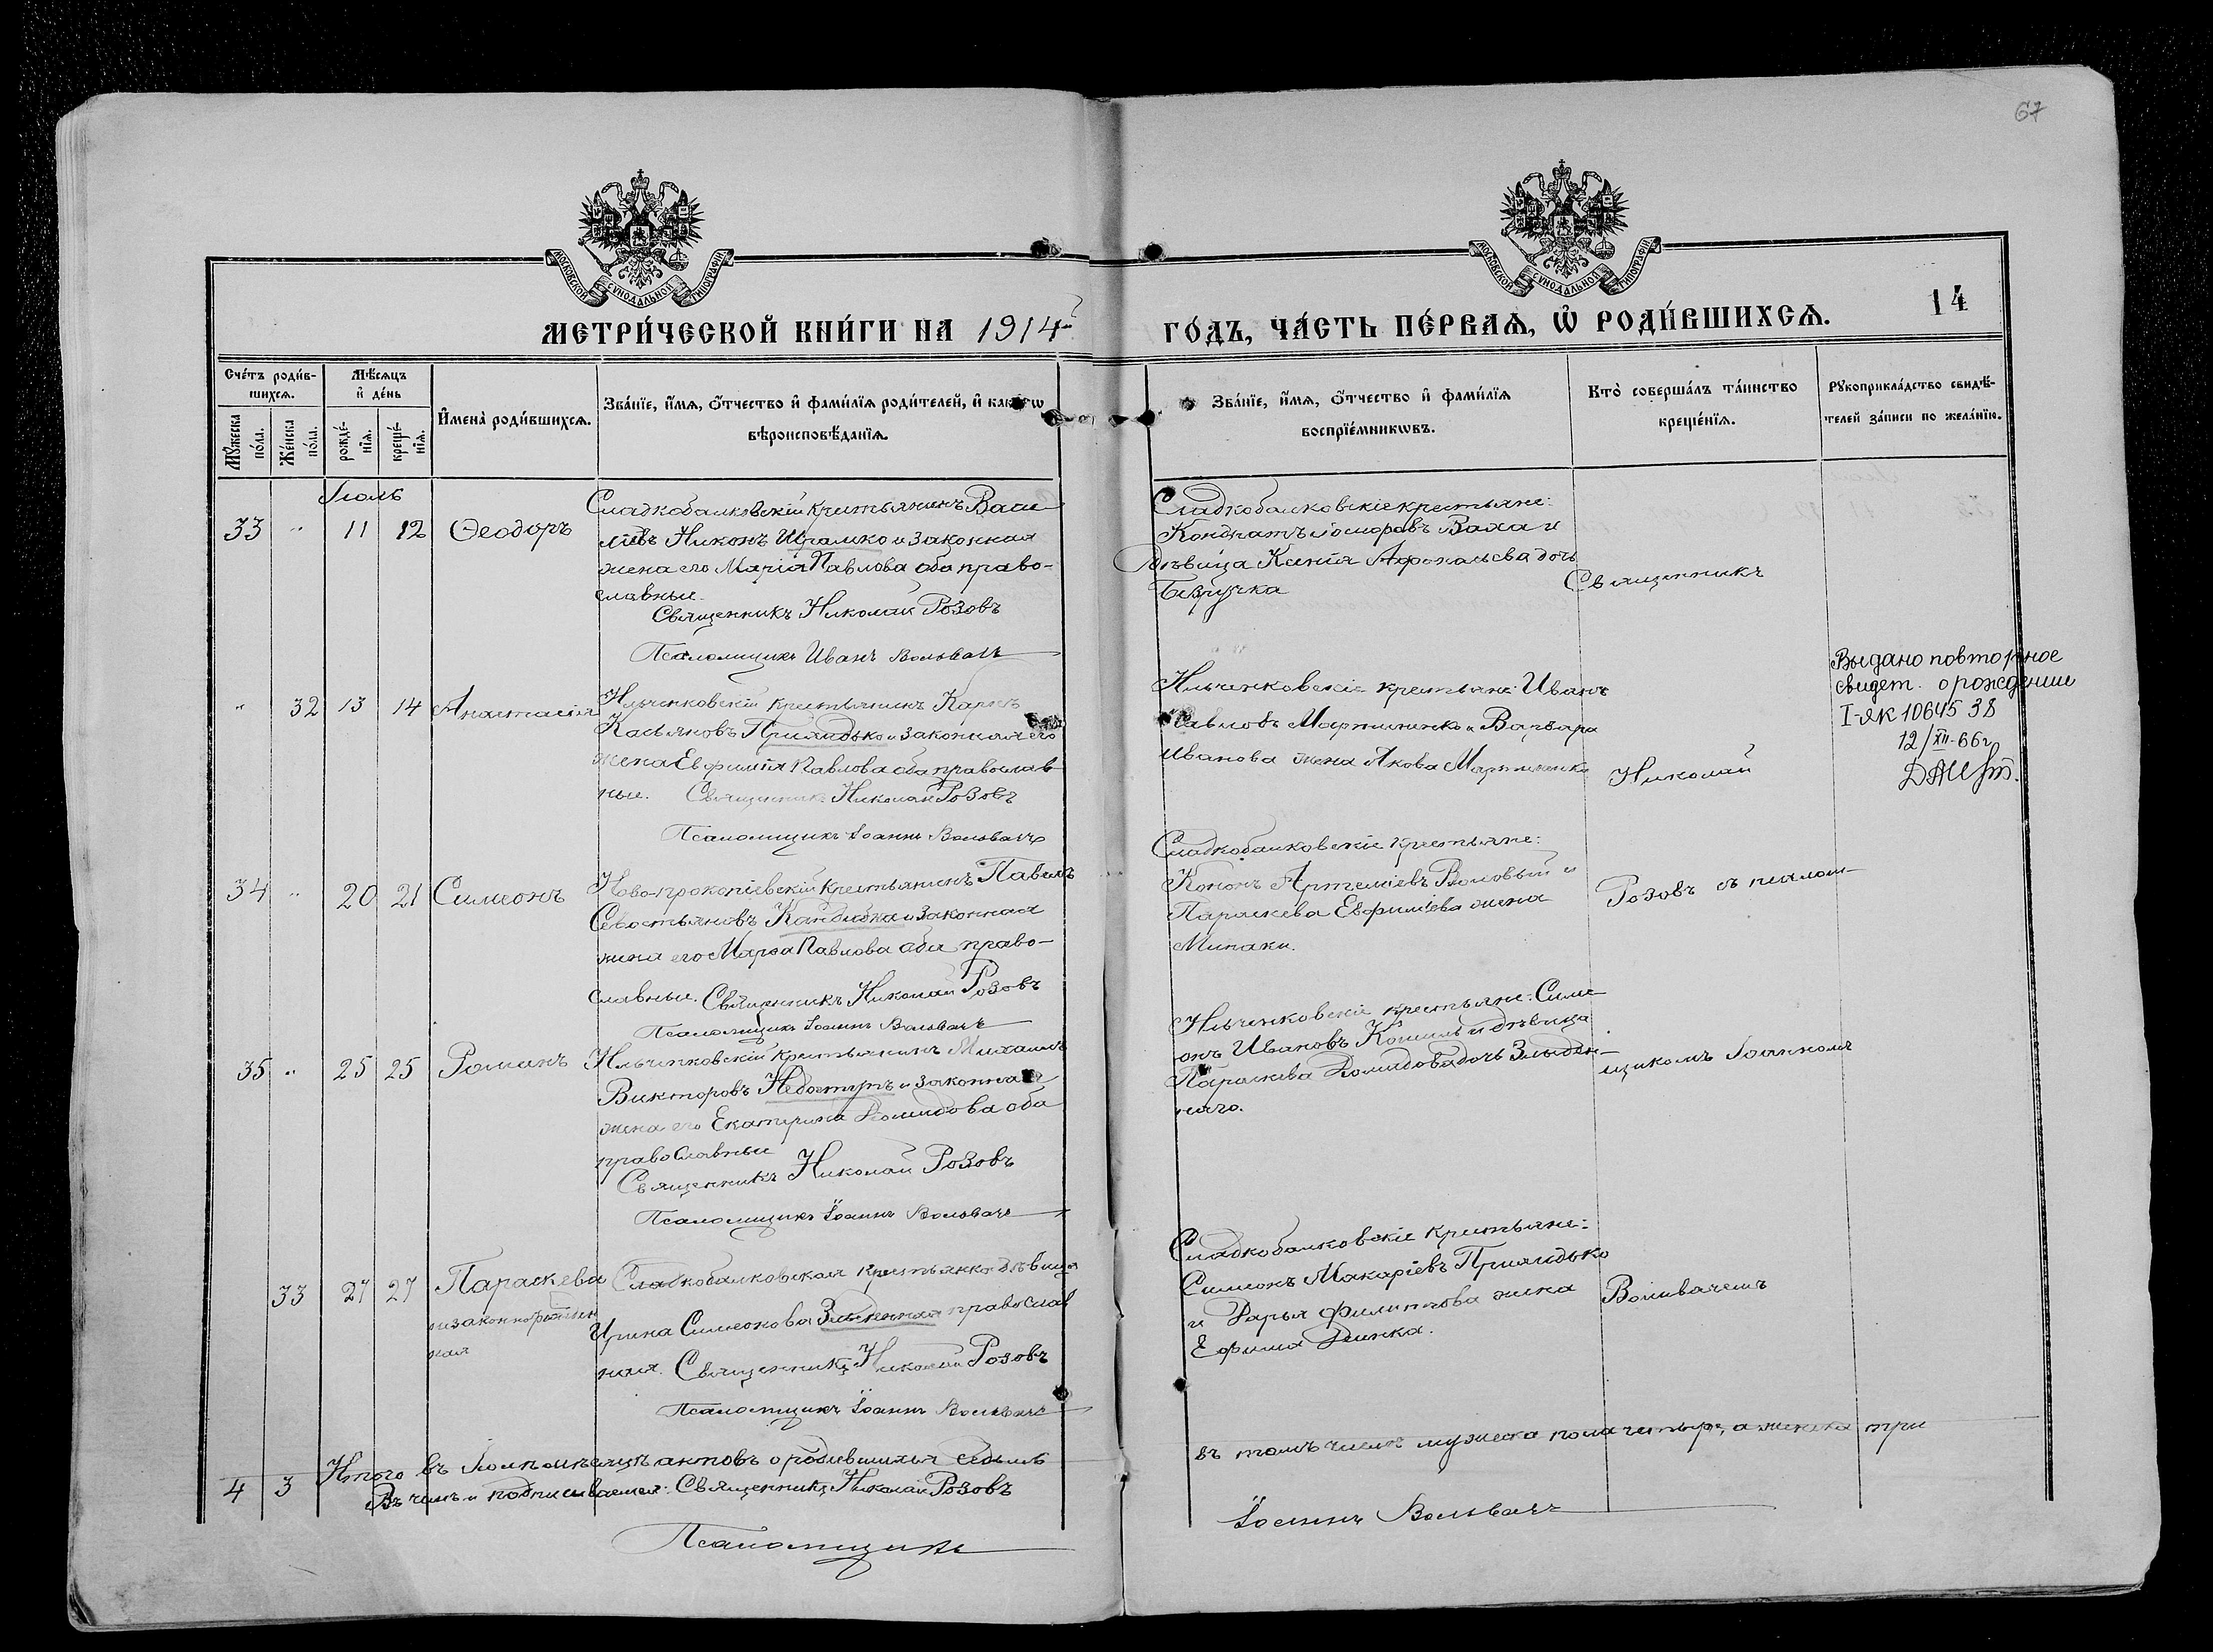 67
МОСКОВСКОЙ СУНОДАЛЬНОЙ ТИПОГРАФІИ
МОСКОВСКОЙ СУНОДАЛЬНОЙ ТИПОГРАФІИ
МЕТРИ́ЧЕСКОЙ КНИ́ГИ НА 1914
ГО́ДЪ, ЧА́СТЬ ПЕ́РВАѦ, Ѽ РОДИ́ВШИХСѦ.
14
Сче́тъ роди́в-
шихсѧ.
Мꙋжеска по́ла.
Же́нска по́ла.
Мѣ́сѧцъ
и҆ де́нь
рожде́-
нїѧ.
креще́-
нїѧ.
И҆мена̀ роди́вшихсѧ.
Зва́нїе, и҆́мѧ, ѻ҆́тчество и҆ фами́лїѧ роди́телей, и҆ како́гѡ
вѣроисповѣ́данїѧ.
Зва́нїе, и҆́мѧ, ѻ҆́тчество и҆ фами́лїѧ
воспрїе́мникѡвъ.
Кто̀ соверша́лъ та́инство
креще́нїѧ.
Рꙋкоприкла́дство свидѣ́-
телей за́писи по жела́нїю.
Іюль
33 " 11 12 Ѳеодоръ
Сладкобалковскій крестьянинъ Васи
ліевъ Никонъ и законная
жена его Марія Павлова оба право-
славные.
Священникъ Николай Розовъ
Псаломщикъ Иванъ Вольвачъ
Сладкобалковскіе крестьяне:
Кондратъ Ваха и
дѣвица Ксенія дочь
Священникъ
" 32 13 14 Анастасія
Ильченковскій крестьянинъ Карпъ
Касьяновъ Приандько и законная его
жена Евфимія Павлова оба православ
ные. Священникъ Николай Розовъ
Псаломщикъ Іоаннъ Вольвачъ
Ильченковскіе крестьяне: Иванъ
Павловъ Мартиненко и Варвара
Иванова жена Якова Мартиненко
Николай
Выдано повторное
свидет. о рождении
I-ЯК 1064538
12/XII-66г
34 " 20 21 Симеонъ
Ново-прокопіевскій крестьянинъ Павелъ
Севостьяновъ Кандибка и законная
жена его Марѳа Павлова оба право-
славные. Священникъ Николай Розовъ
Псаломщикъ Іоаннъ Вольвачъ
Сладкобалковскіе крестьяне:
Кононъ Артеміевъ Воловый и
Параскева Евфиміева жена
Минаки.
Розовъ съ псалом-
35 " 25 25 Романъ
Ильченковскій крестьянинъ Михаилъ
Викторовъ Недоступъ и законная
жена его Екатерина Діомидова оба
православные
Священникъ Николай Розовъ
Псаломщикъ Іоаннъ Вольвачъ
Ильченковскіе крестьяне: Симе
онъ Ивановъ Кошиль и дѣвица
Параскева Діомидова дочь Злыден-
наго.
щикомъ Іоанномъ
33 27 27 Параскева
незаконнорожден
ная
Сладкобалковская крестьянка дѣвица
Ирина Симеонова Злыденная православ
ная. Священникъ Николай Розовъ
Псаломщикъ Іоаннъ Вольвачъ
Сладкобалковскіе крестьяне:
Симеонъ Макаріевъ Приандько
и Дарья Филиппова жена
Ефима Динка.
Вольвачемъ
Итого въ Іюлѣ мѣсяцѣ актовъ о родившихся седьмъ
въ томъ числѣ мужеска пола четыре, а женска три
4 3 Въ чемъ и подписываемся: Священникъ Николай Розовъ
Псаломщикъ
Іоаннъ Вольвачъ